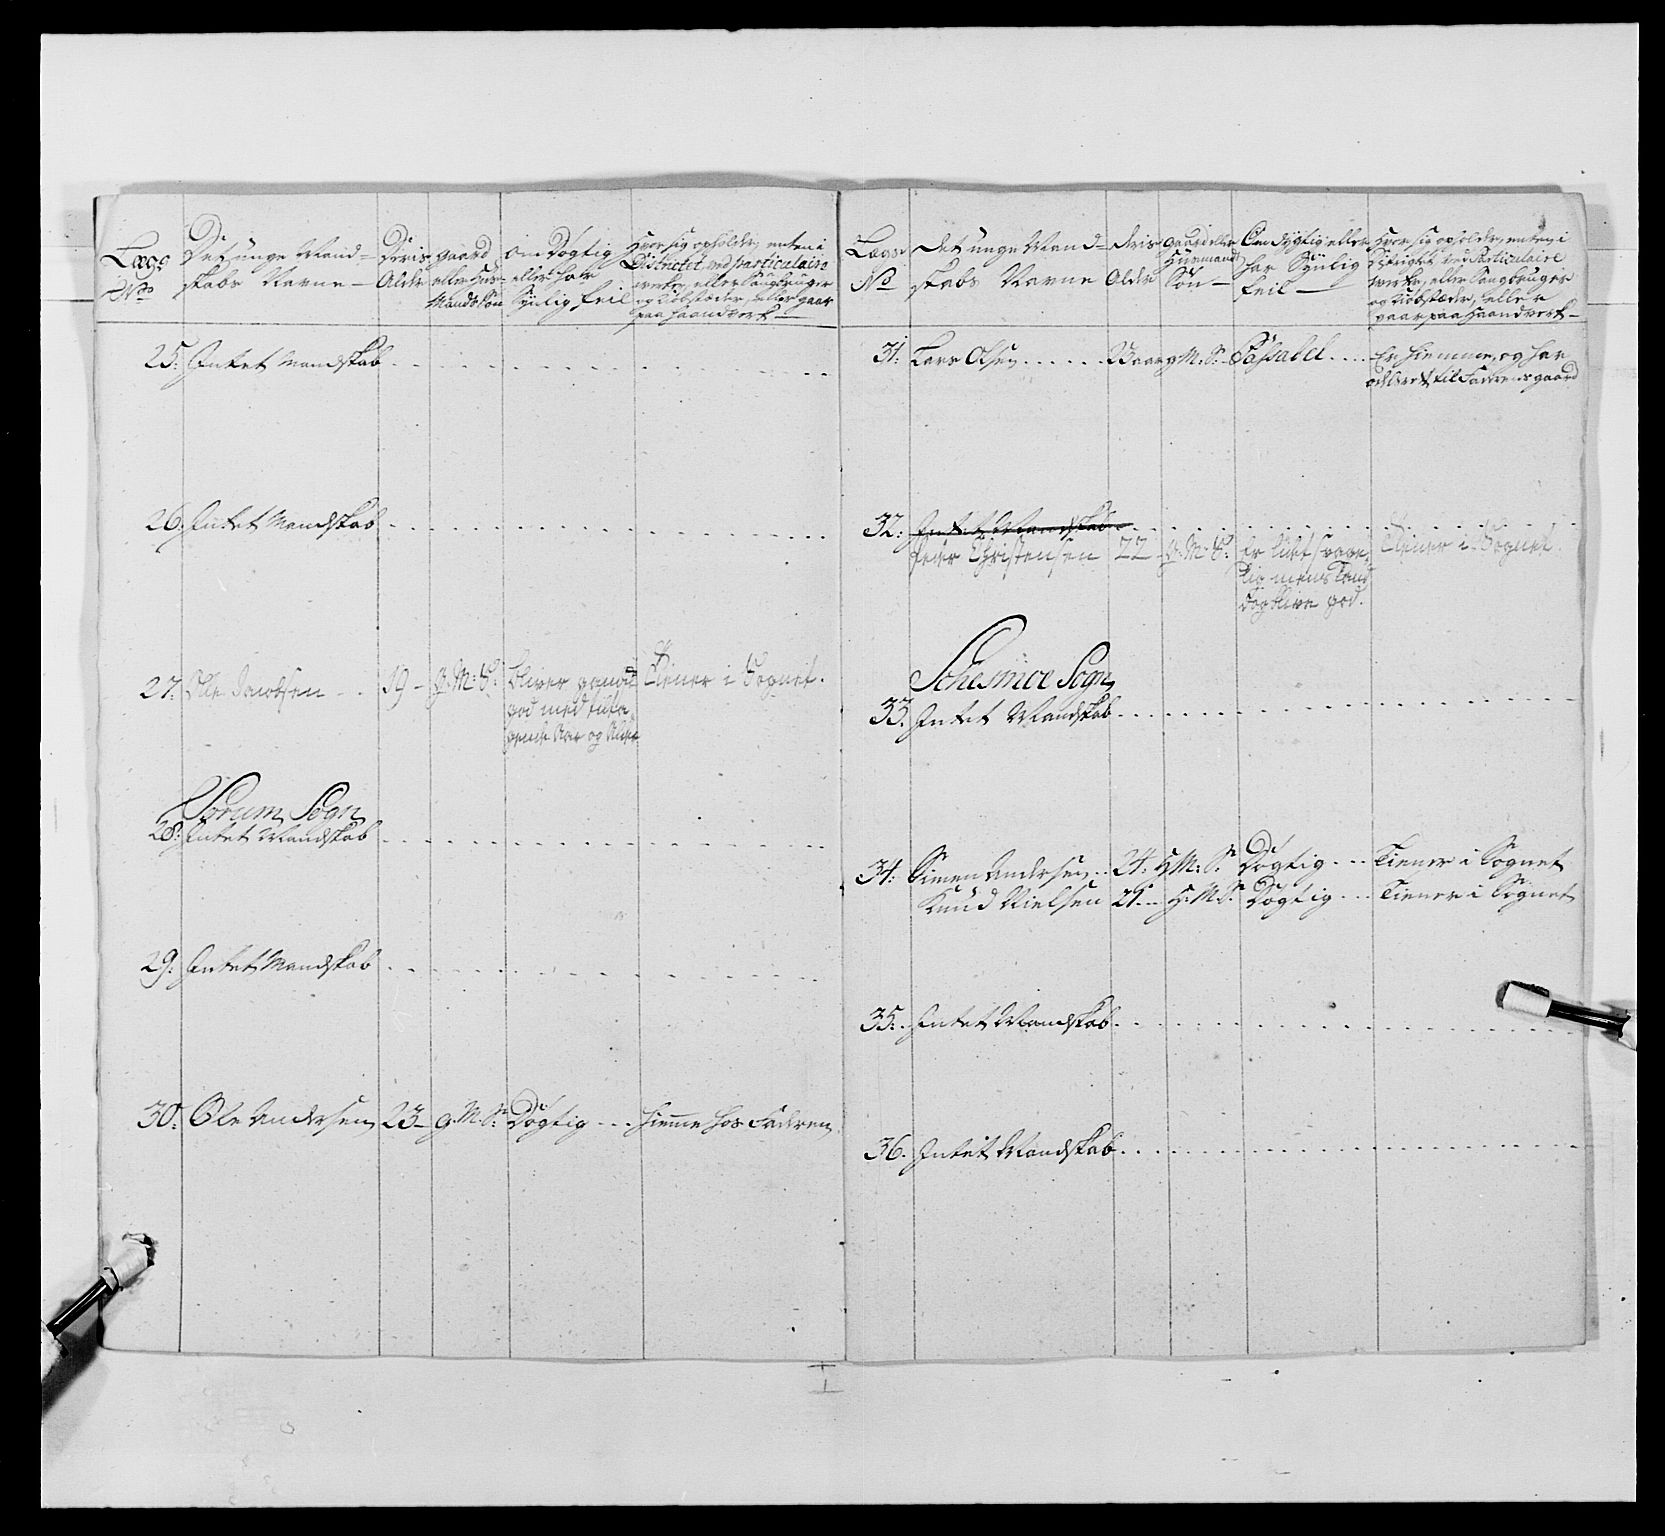 Lægs No
Det unge Mand-
skabs Navne
Deris
Alder
gaard
eller Huus-
Mandssøn
om Døgtig
eller have
Synlig feil
Hvor sig opholder, enten i
Districtet ved particulaire
værker, eller Saugbruger
og Kiøbstæder, eller gaar
paa Haandverk
25: Intet Mandskab
26. Intet Mandskab
27: Ole Jacobsen 19 - g: M: S: bliver
god med
Aar og
Tiener i Sognet.
Sørum Sogn
28: Intet Mandskab
29: Intet Mandskab
30: Ole Andersen 23 - g. M. S: Døgtig hieme hos Faderen
Lægs
No
Det unge Mand-
skabs Navne
Deris
Alder
Gaard eller
Huusmands
Søn
Om dygtig eller
har Synlig
feil
Hvor sig opholder, enten i
Districtet ved Particulaire
værker, eller Saugbruger
og Kiøbstæder, eller
gaar paa Haandverk
31: Lars Olsen g. M. S. Passabel Er hiemme, og har
til Faderens gaard
32: Intet Mandskab
Christensen 22 g: M: S: Er
mens kand
blive god.
Tiener i Sognet.
Schesmoe Sogn
33. Intet Mandskab
34: Simen Andersen 24: H M: S: Døgtig Tiener i Sognet
Knud Nielsen 21 H: M: S: Døgtig Tiener i Sognet
35: Intet Mandskab
36. Intet Mandskab